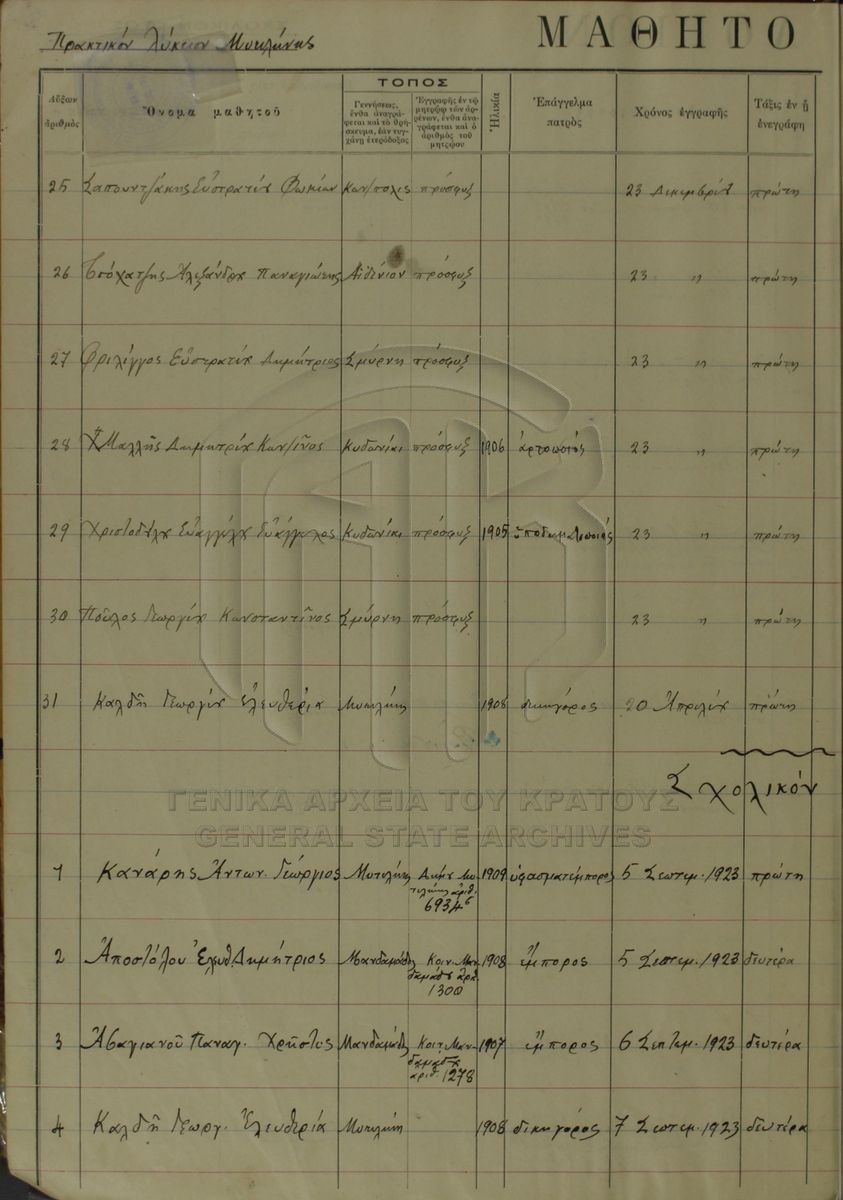 Πρακτικόν Λύκειον Μυτιλήνης
ΜΑΘΗΤΟ
Αὔξων ἀριθμὸς
Ὄνομα μαθητοῦ
ΤΟΠΟΣ
Γεννήσεως, ἔνθα ἀναγράφεται καὶ τὸ θρήσκευμα, ἐὰν τυγχάνῃ ἑτερόδοξος
Ἐγγραφῆς ἐν τῷ μητρῴῳ τῶν ἀρρένων, ἔνθα ἀναγράφεται καὶ ὁ ἀριθμὸς τοῦ μητρῴου
Ἡλικία
Ἐπάγγελμα πατρὸς
Χρόνος ἐγγραφῆς
Τάξις ἐν ᾗ ἐνεγράφη
25 Σαπουντζάκης Εὐστρατίου Φωκίων Κων/πολις πρόσφυξ 23 Δεκεμβρίου πρώτη
26 Ἀλεξάνδρου Παναγιώτης Ἀϊδίνιον πρόσφυξ 23 〃 πρώτη
27 Φριλίγγος Εὐστρατίου Δημήτριος Σμύρνη πρόσφυξ 23 〃 πρώτη
28 Χ''Μαλλῆς Δημητρίου Κων/τῖνος Κυδωνίαι πρόσφυξ 1906 ἀρτοποιός 23 〃 πρώτη
29 Χριστοδούλου Εὐαγγέλου Εὐάγγελος Κυδωνίαι πρόσφυξ 1905 ὑποδηματοποιός 23 〃 πρώτη
30 Ποῦλος Γεωργίου Κωνσταντῖνος Σμύρνη πρόσφυξ 23 〃 πρώτη
31 Καλδῆ Γεωργίου Ἐλευθερία Μυτιλήνη 1908 δικηγόρος 20 Ἀπριλίου πρώτη
Σχολικόν
ΓΕΝΙΚΑ ΑΡΧΕΙΑ ΤΟΥ ΚΡΑΤΟΥΣ
GENERAL STATE ARCHIVES
1 Κανάρης Ἀντων. Γεώργιος Μυτιλήνη Δήμ. Μυτιλήνης ἀριθ. 6934 1909 ὑφασματέμπορος 5 Σεπτεμ. 1923 πρώτη
2 Ἀποστόλου Ἐλευθ. Δημήτριος Μανδαμάδος Κοιν. Μανδαμάδου ἀριθ. 1300 1908 ἔμπορος 5 Σεπτεμ. 1923 δευτέρα
3 Ἀβαγιανοῦ Παναγ. Χρῆστος Μανδαμάδος Κοιν. Μανδαμάδου ἀριθ. 1278 1907 ἔμπορος 6 Σεπτεμ. 1923 δευτέρα
4 Καλδῆ Γεωργ. Ἐλευθερία Μυτιλήνη 1908 δικηγόρος 7 Σεπτεμ. 1923 δευτέρα